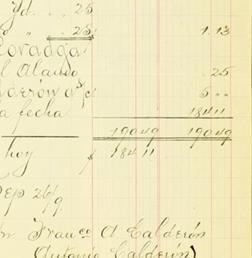 Yd. .. 25
" .. 25 1.13
l Alando .25
lderón a/c 5 ..
a fecha 18411
19049 19049
hoy $ 18411
Sep 26/9
Franco A Calderón
(Antonio Calderón)